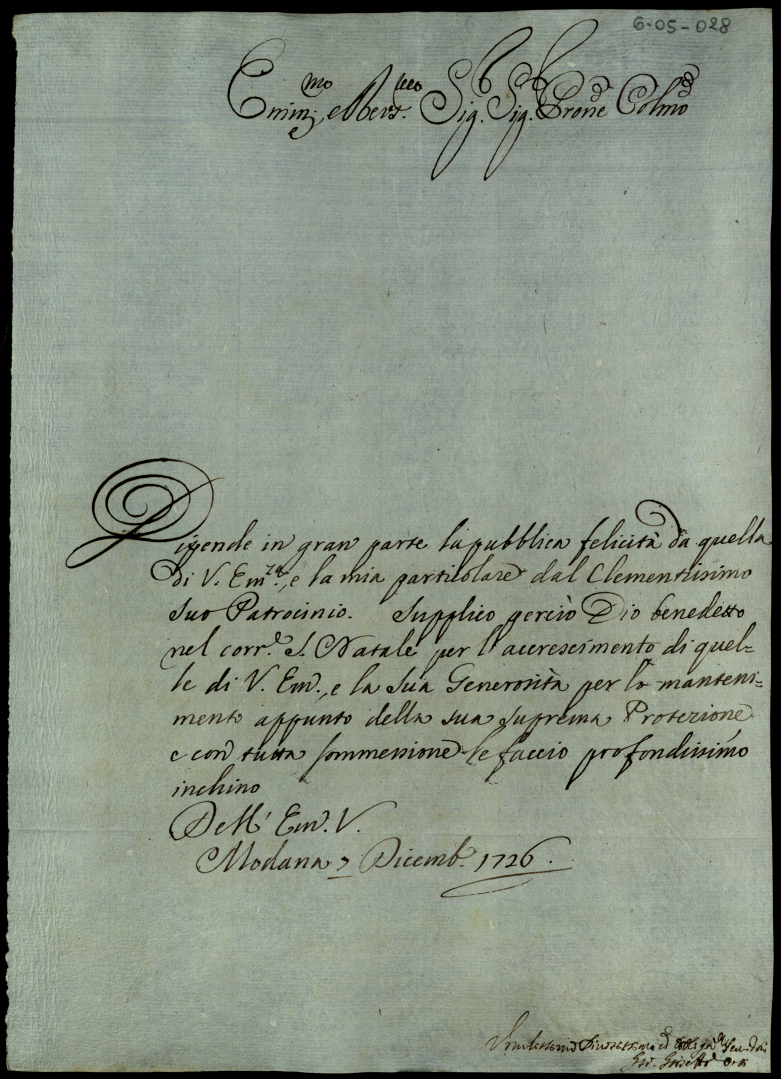 6-05-028
Emin.mo e Rev. Sig. Sig. Prone Colmo
Dipende in gran parte la pubblica felicità da quella
di V. Em.za, e la mia particolare dal Clementissimo
suo Patrocinio. Supplico perciò Dio benedetto
nel corr.e S. Natale per l'accrescimento di quel=
le di V. Em., e la sua Generosità per lo manteni=
mento appunto della sua suprema Protezione
e con tutta sommessione le faccio profondissimo
inchino
Dell' Em. V.
Modana 7 Dicemb. 1726.